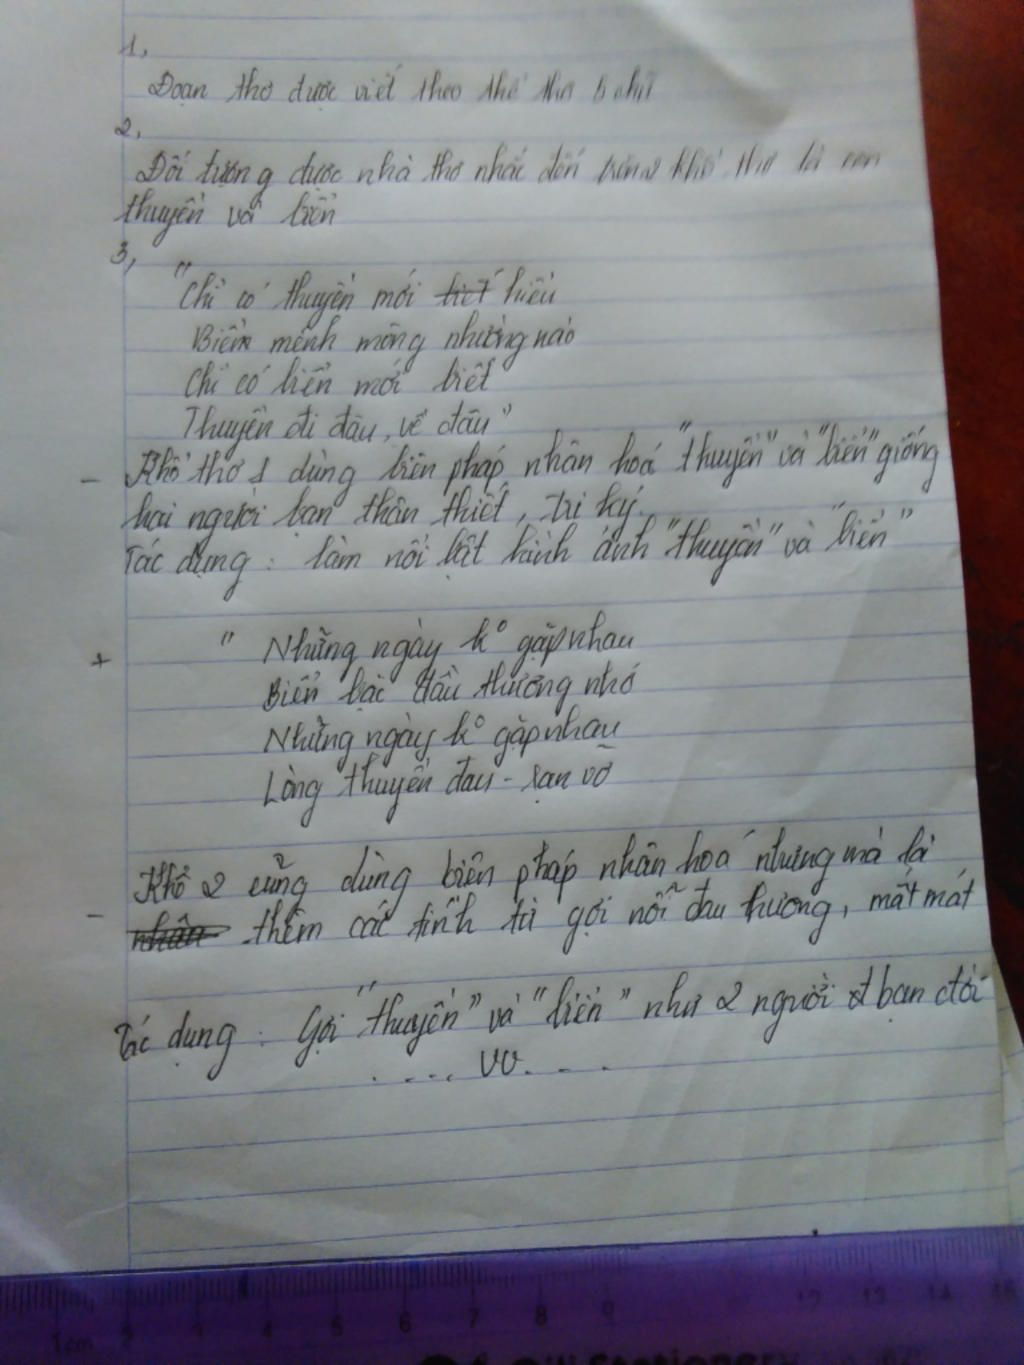 1,
Đoạn thơ được viết theo thể thơ 5 chữ
2,
Đối tượng được nhà thơ nhắc đến trong 2 khổ thơ là con
thuyền và biển
3,
"Chỉ có thuyền mới biết hiểu
Biển mênh mông nhường nào
Chỉ có biển mới biết
Thuyền đi đâu, về đâu"
- Khổ thơ 1 dùng biện pháp nhân hoá "thuyền" và "biển" giống
hai người bạn thân thiết, tri kỷ.
Tác dụng : làm nổi bật hình ảnh "thuyền" và "biển"
+ " Những ngày k° gặp nhau
Biển bạc đầu thương nhớ
Những ngày k° gặp nhau
Lòng thuyền đau - rạn vỡ
- Khổ 2 cũng dùng biện pháp nhân hoá nhưng mà là
nhân thêm các tính từ gợi nỗi đau thương, mất mát
Tác dụng : Gợi "thuyền" và "biển" như 2 người bạn đời
.... vv....
1cm 2 3 4 5 6 7 8 9 12 13 14 15